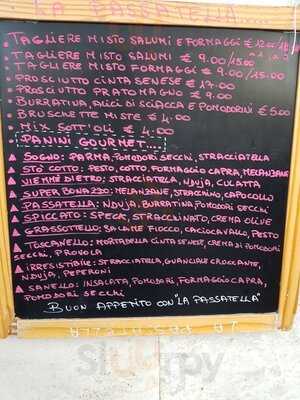 LA PASSATELLA....
• TAGLIERE MISTO SALUMI E FORMAGGI € 12.00
• TAGLIERE MISTO SALUMI € 9.00/15.00
• TAGLIERE MISTO FORMAGGI € 9.00/15.00
• PROSCIUTTO CINTA SENESE € 17.00
• PROSCIUTTO PRATOMAGNO € 9.00
• BURRATINA, ALICI DI SCIACCA E POMODORINI € 5.00
• BRUSCHETTE MISTE € 4.00
• MIX SOTT'OLI € 4.00
PANINI GOURMET....
▲ SOGNO: PARMA, POMODORI SECCHI, STRACCIATELLA
▲ STO' COTTO: PESTO, COTTO, FORMAGGIO CAPRA, MELANZANE
▲ VIEMME DIETRO: STRACCIATELLA, NDUJA, CULATTA
▲ SUPER BONAZZO: MELANZANE, STRACCHINO, CAPOCOLLO
▲ PASSATELLA: NDUJA, BURRATINA, POMODORI SECCHI
▲ SPICCATO: SPECK, STRACCHINATO, CREMA OLIVE
▲ GRASSOTTELLO: SALAME FIOCCO, CACIOCAVALLO, PESTO
▲ TOSCANELLO: MORTADELLA CINTA SENESE, CREMA DI POMODORI
SECCHI, PROVOLA
▲ IRRESISTIBILE: STRACCIATELLA, GUANCIALE CROCCANTE,
NDUJA, PEPERONI
▲ SANELLO: INSALATA, POMODORI, FORMAGGIO CAPRA,
POMODORI SECCHI
BUON APPETITO CON "LA PASSATELLA"
Sluurpy